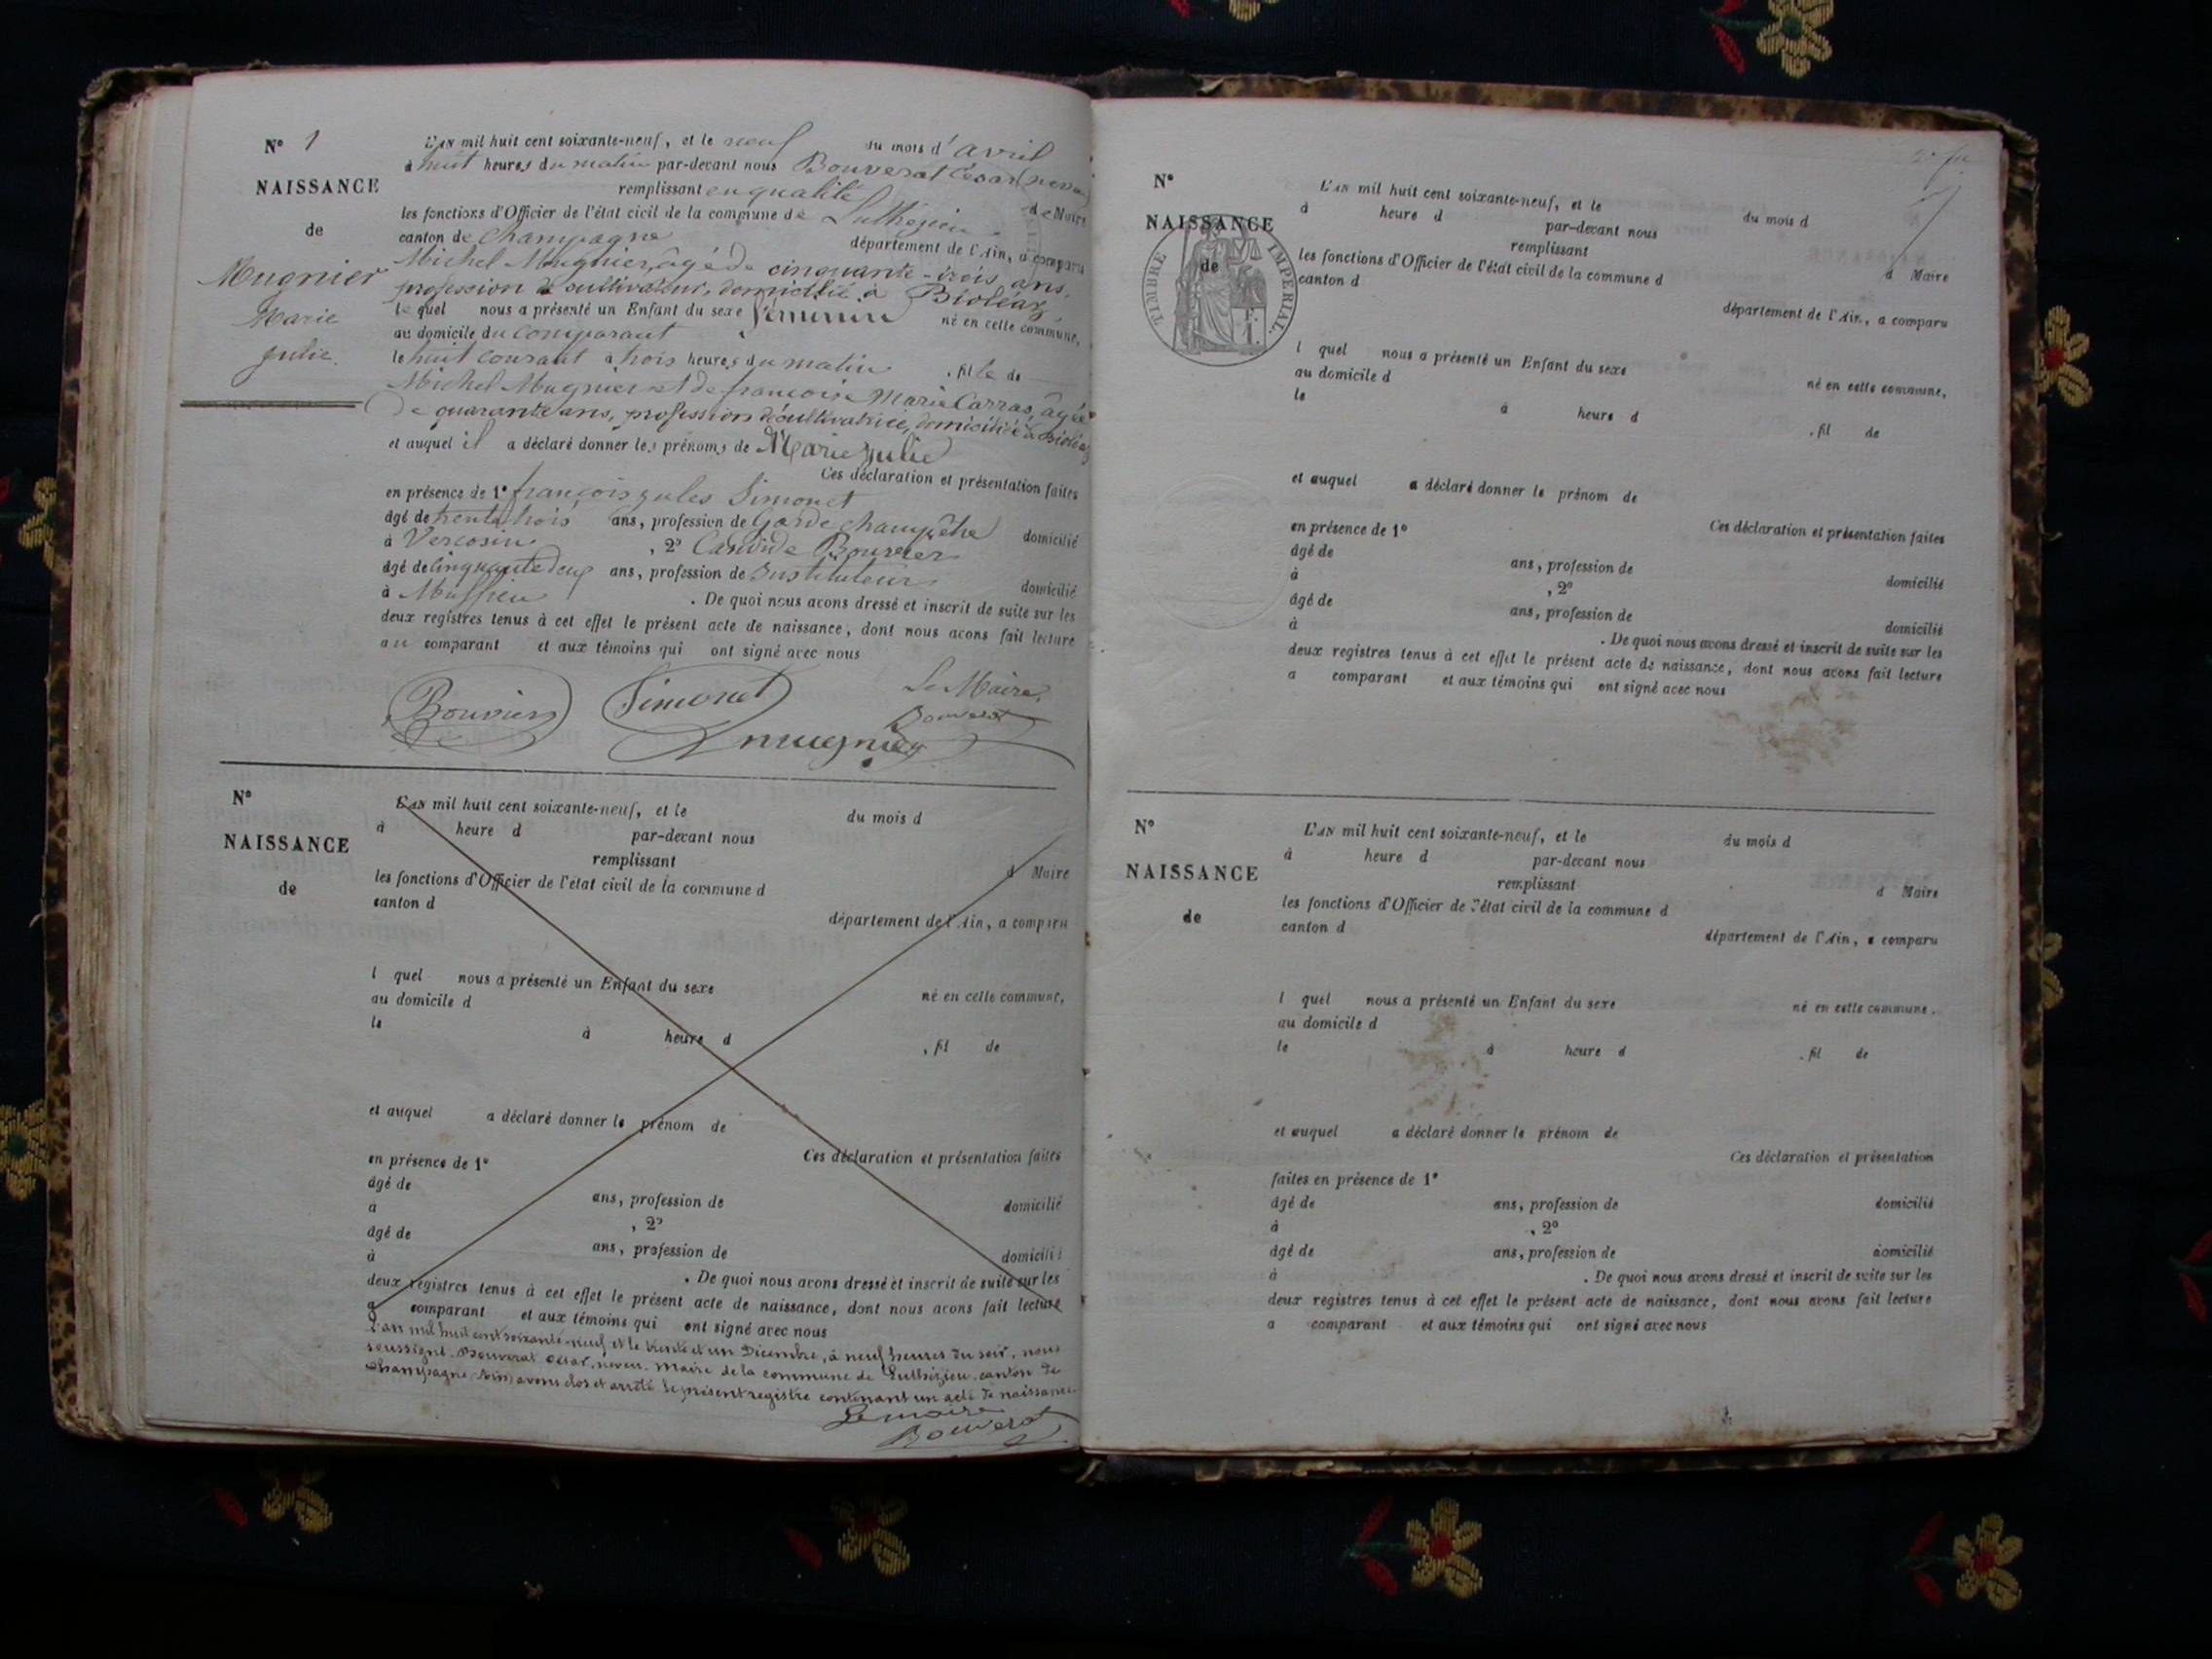 N° 1
NAISSANCE
de
Mugnier
Marie
Julie.
L'AN mil huit cent soixante-neuf, et le neuf du mois d'avril
à huit heures du matin par-devant nous Bouverat César (neveu)
remplissant en qualité de Maire
les fonctions d'Officier de l'état civil de la commune de Luthézieu
canton de Champagne département de l'Ain, a comparu
Michel Mugnier, âgé de cinquante-trois ans,
profession de cultivateur, domicilié à Bioléaz,
lequel nous a présenté un Enfant du sexe féminin né en cette commune,
au domicile du comparant
le huit courant à trois heures du matin , fille de
Michel Mugnier et de françoise Marie Carraz, âgée
de quarante ans, profession de cultivatrice, domiciliée à Bioléaz
et auquel il a déclaré donner les prénoms de Marie Julie
Ces déclaration et présentation faites
en présence de 1° françois jules Simonet
âgé de trente trois ans, profession de Garde champêtre domicilié
à Vercosin , 2° Candide Bouvier
âgé de cinquante deux ans, profession de Instituteur domicilié
à Massieu . De quoi nous avons dressé et inscrit de suite sur les
deux registres tenus à cet effet le présent acte de naissance, dont nous avons fait lecture
au comparant et aux témoins qui ont signé avec nous
Le Maire,
Bouvier Simonet Bouverat
mugnier
N°
NAISSANCE
de
L'AN mil huit cent soixante-neuf, et le du mois d
à heure d par-devant nous
remplissant d Maire
les fonctions d'Officier de l'état civil de la commune d
canton d département de l'Ain, a comparu
l quel nous a présenté un Enfant du sexe né en cette commune,
au domicile d
le à heure d , fil de
et auquel a déclaré donner le prénom de
Ces déclaration et présentation faites
en présence de 1°
âgé de ans, profession de domicilié
à , 2°
âgé de ans, profession de domicilié
à . De quoi nous avons dressé et inscrit de suite sur les
deux registres tenus à cet effet le présent acte de naissance, dont nous avons fait lecture
a comparant et aux témoins qui ont signé avec nous
L'an mil huit cent soixante-neuf et le trente et un Décembre, à neuf heures du soir, nous
soussigné, Bouverat César, neveu, maire de la commune de Luthézieu, canton de
Champagne (Ain) avons clos et arrêté le présent registre contenant un acte de naissance.
Le maire
Bouverat
N°
NAISSANCE
de
TIMBRE IMPERIAL.
L'AN mil huit cent soixante-neuf, et le du mois d
à heure d par-devant nous
remplissant d Maire
les fonctions d'Officier de l'état civil de la commune d
canton d département de l'Ain, a comparu
l quel nous a présenté un Enfant du sexe né en cette commune,
au domicile d
le à heure d , fil de
et auquel a déclaré donner le prénom de
Ces déclaration et présentation faites
en présence de 1°
âgé de ans, profession de domicilié
à , 2°
âgé de ans, profession de domicilié
à . De quoi nous avons dressé et inscrit de suite sur les
deux registres tenus à cet effet le présent acte de naissance, dont nous avons fait lecture
a comparant et aux témoins qui ont signé avec nous
N°
NAISSANCE
de
L'AN mil huit cent soixante-neuf, et le du mois d
à heure d par-devant nous
remplissant d Maire
les fonctions d'Officier de l'état civil de la commune d
canton d département de l'Ain, a comparu
l quel nous a présenté un Enfant du sexe né en cette commune,
au domicile d
le à heure d , fil de
et auquel a déclaré donner le prénom de
Ces déclaration et présentation
faites en présence de 1°
âgé de ans, profession de domicilié
à , 2°
âgé de ans, profession de domicilié
à . De quoi nous avons dressé et inscrit de suite sur les
deux registres tenus à cet effet le présent acte de naissance, dont nous avons fait lecture
a comparant et aux témoins qui ont signé avec nous